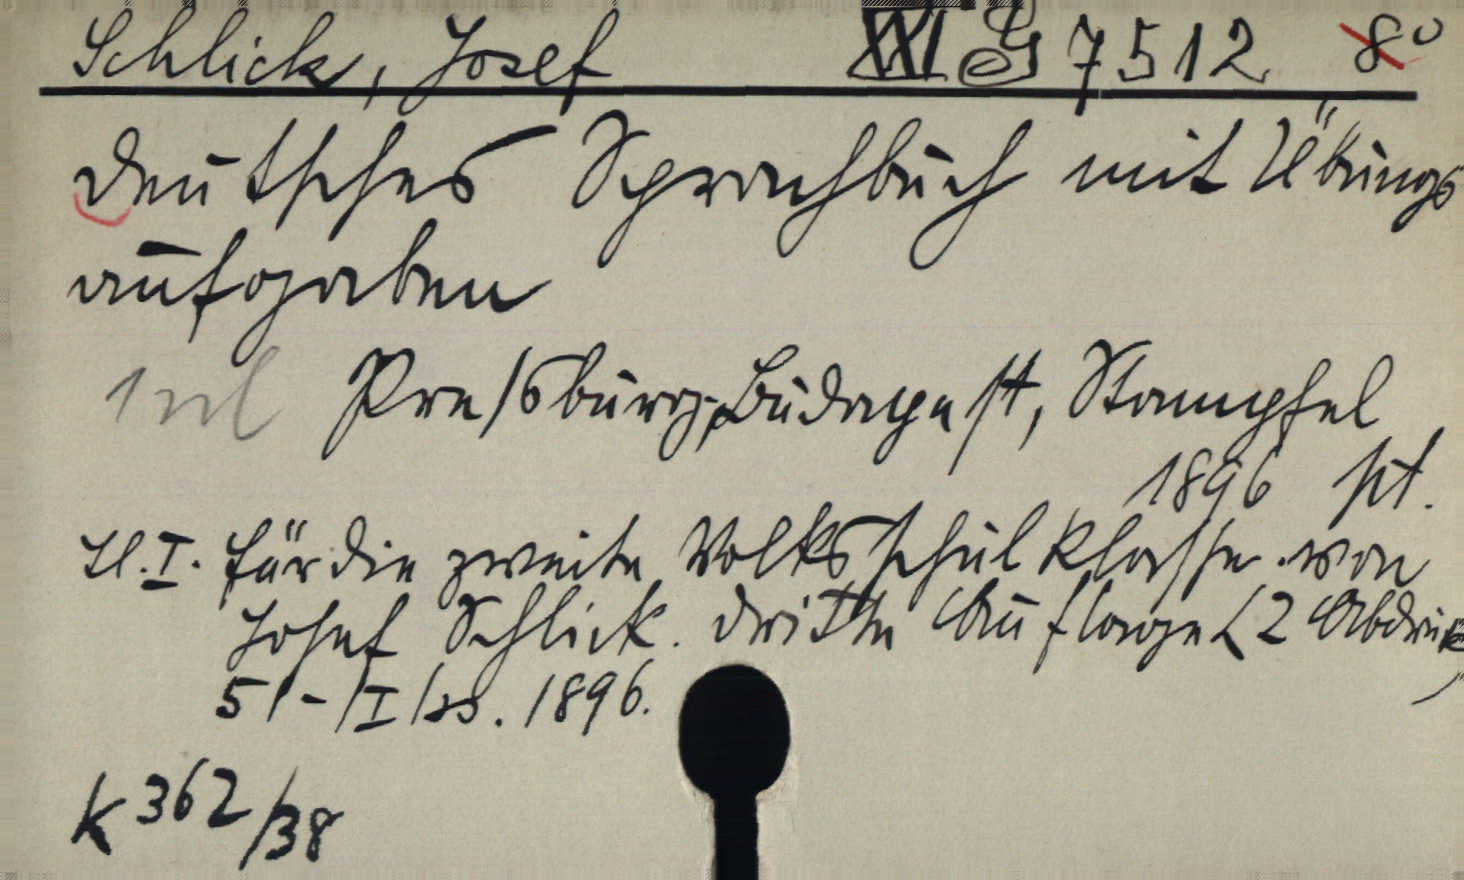 Schlick, Josef XXI G 7512 8°
Deutsches Sprachbuch mit Übungs
aufgaben
Pressburg, Budapest, Stampfel
1896
Tl. I. für die zweite Volksschulklasse. von
Josef Schlick. Dritte Auflage (2 Abdruck)
51 - 1896.
K 362/38